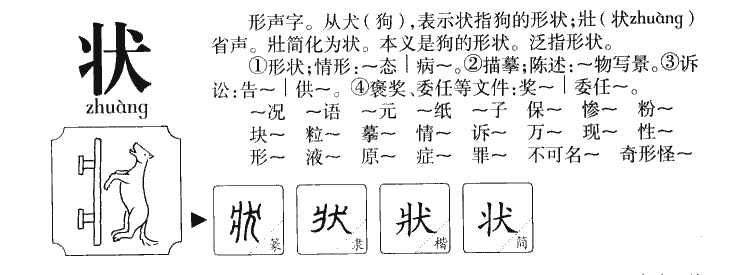 状
zhuàng
形声字。从犬（狗），表示状指狗的形状；壯（状zhuàng）
省声。壯简化为状。本义是狗的形状。泛指形状。
①形状；情形：～态｜病～。②描摹；陈述：～物写景。③诉
讼：告～｜供～。④褒奖、委任等文件：奖～｜委任～。
～况 ～语 ～元 ～纸 ～子 保～ 惨～ 粉～
块～ 粒～ 摹～ 情～ 诉～ 万～ 现～ 性～
形～ 液～ 原～ 症～ 罪～ 不可名～ 奇形怪～
狀 篆
状 隶
狀 楷
状 简